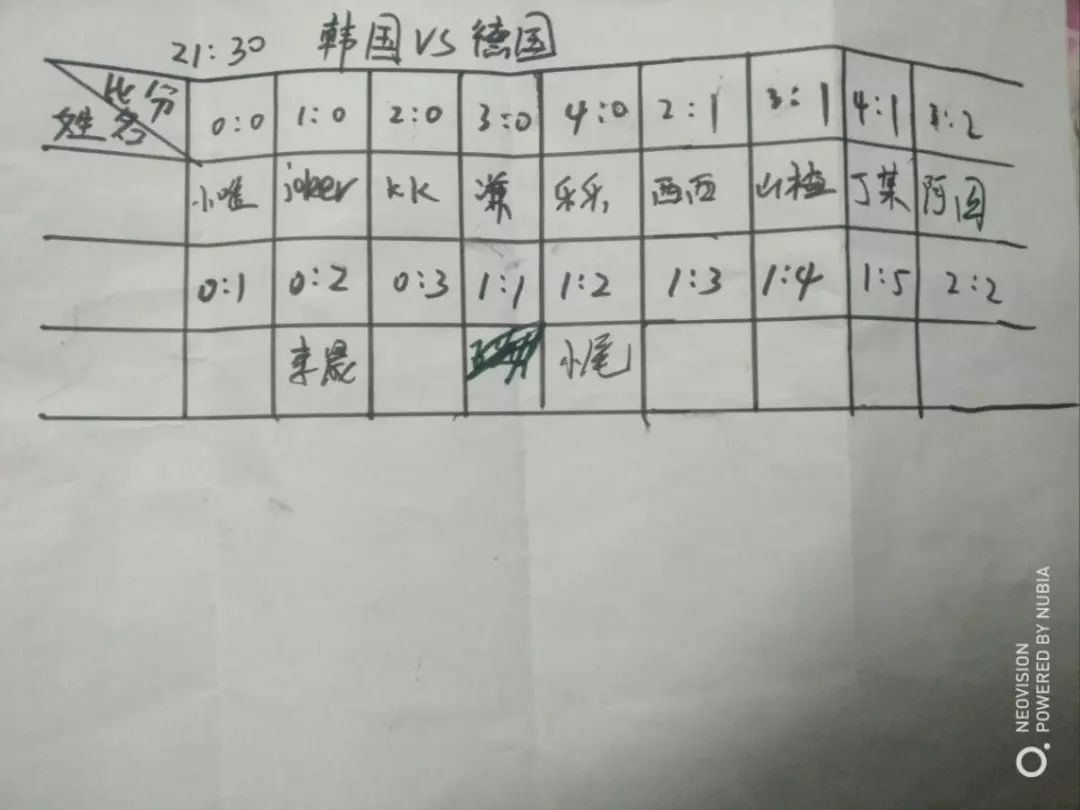 21:30 韩国VS德国
比分
姓名 0:0 1:0 2:0 3:0 4:0 2:1 3:1 4:1 3:2
小唯 joker KK 乐乐 西西 山楂 丁某 阿国
0:1 0:2 0:3 1:1 1:2 1:3 1:4 1:5 2:2
李晟 小尾
NEOVISION
POWERED BY NUBIA